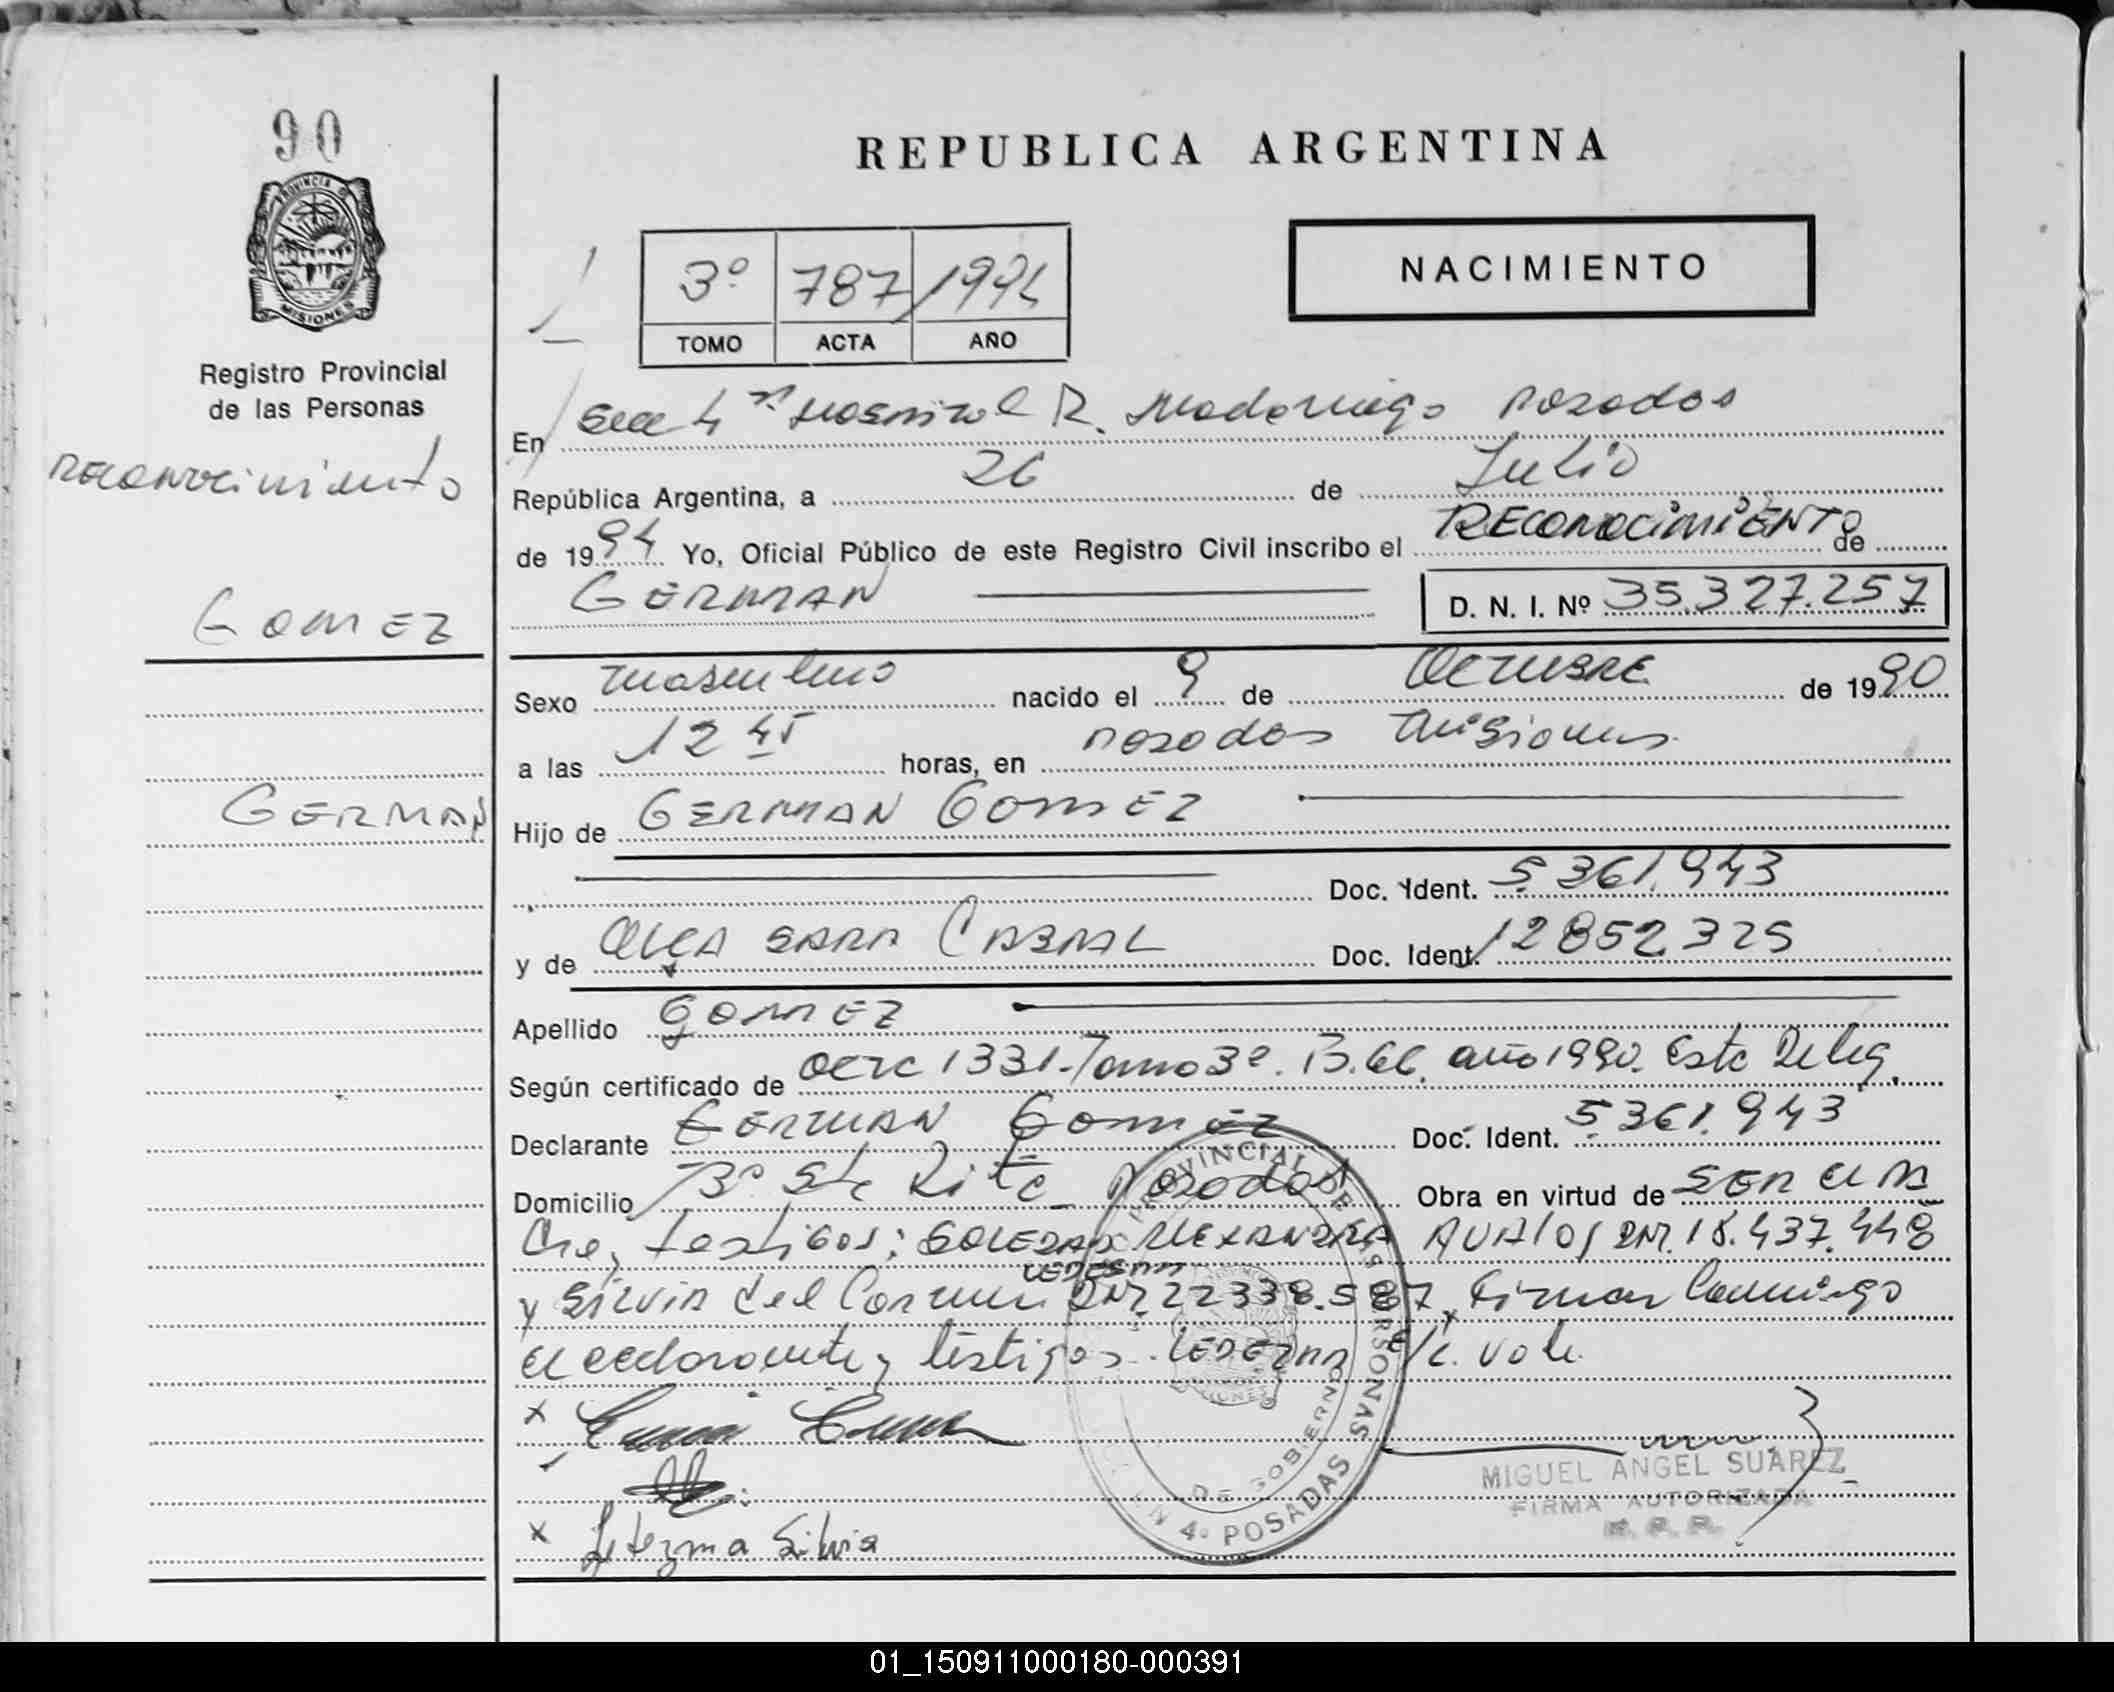 90
PROVINCIA DE
MISIONES
Registro Provincial
de las Personas
Reconocimiento
GOMEZ
GERMAN
REPUBLICA ARGENTINA
3º 787/1994
TOMO ACTA AÑO
NACIMIENTO
En Secc 4ª Hospital R. Madariaga Posadas
República Argentina, a 26 de Julio
de 1994 Yo, Oficial Público de este Registro Civil inscribo el RECONOCIMIENTO de
GERMAN D. N. I. Nº 35.327.257
Sexo masculino nacido el 9 de OCTUBRE de 1990
a las 12 45 horas, en Posadas Misiones
Hijo de GERMAN GOMEZ
Doc. Ident. 5.361.943
y de OLGA SARA CABRAL Doc. Ident. 12852325
Apellido GOMEZ
Según certificado de acta 1331-Tomo 3º. año 1990. Este Deleg.
Declarante GERMAN GOMEZ Doc. Ident. 5.361.943
Domicilio Bº Sta Rita Posadas Obra en virtud de SER el
testigos: SOLEDAD ALEXANDRA AVALOS DNI. 18.437.448
LEDESMA
y SILVIA del Carmen DNI. 22.338.587, Firman Conmigo
el declarante y testigos. LEDEZMA E/L. vale.
x
x Ledezma Silvia
PROVINCIAL DE LAS PERSONAS
DE GOBIERNO
4º POSADAS
MIGUEL ANGEL SUAREZ
FIRMA AUTORIZADA
R. P. P.
01_150911000180-000391